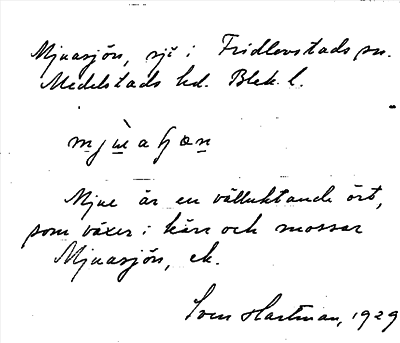 Mjuasjön, sjö i Fridlevstads sn.
Medelstads hd. Blek. l.
mjɯ̈aɧœn
Mjue är en välluktande ört,
som växer i kärr och mossar
Mjuasjön, ek.
Sven Hartman, 1929